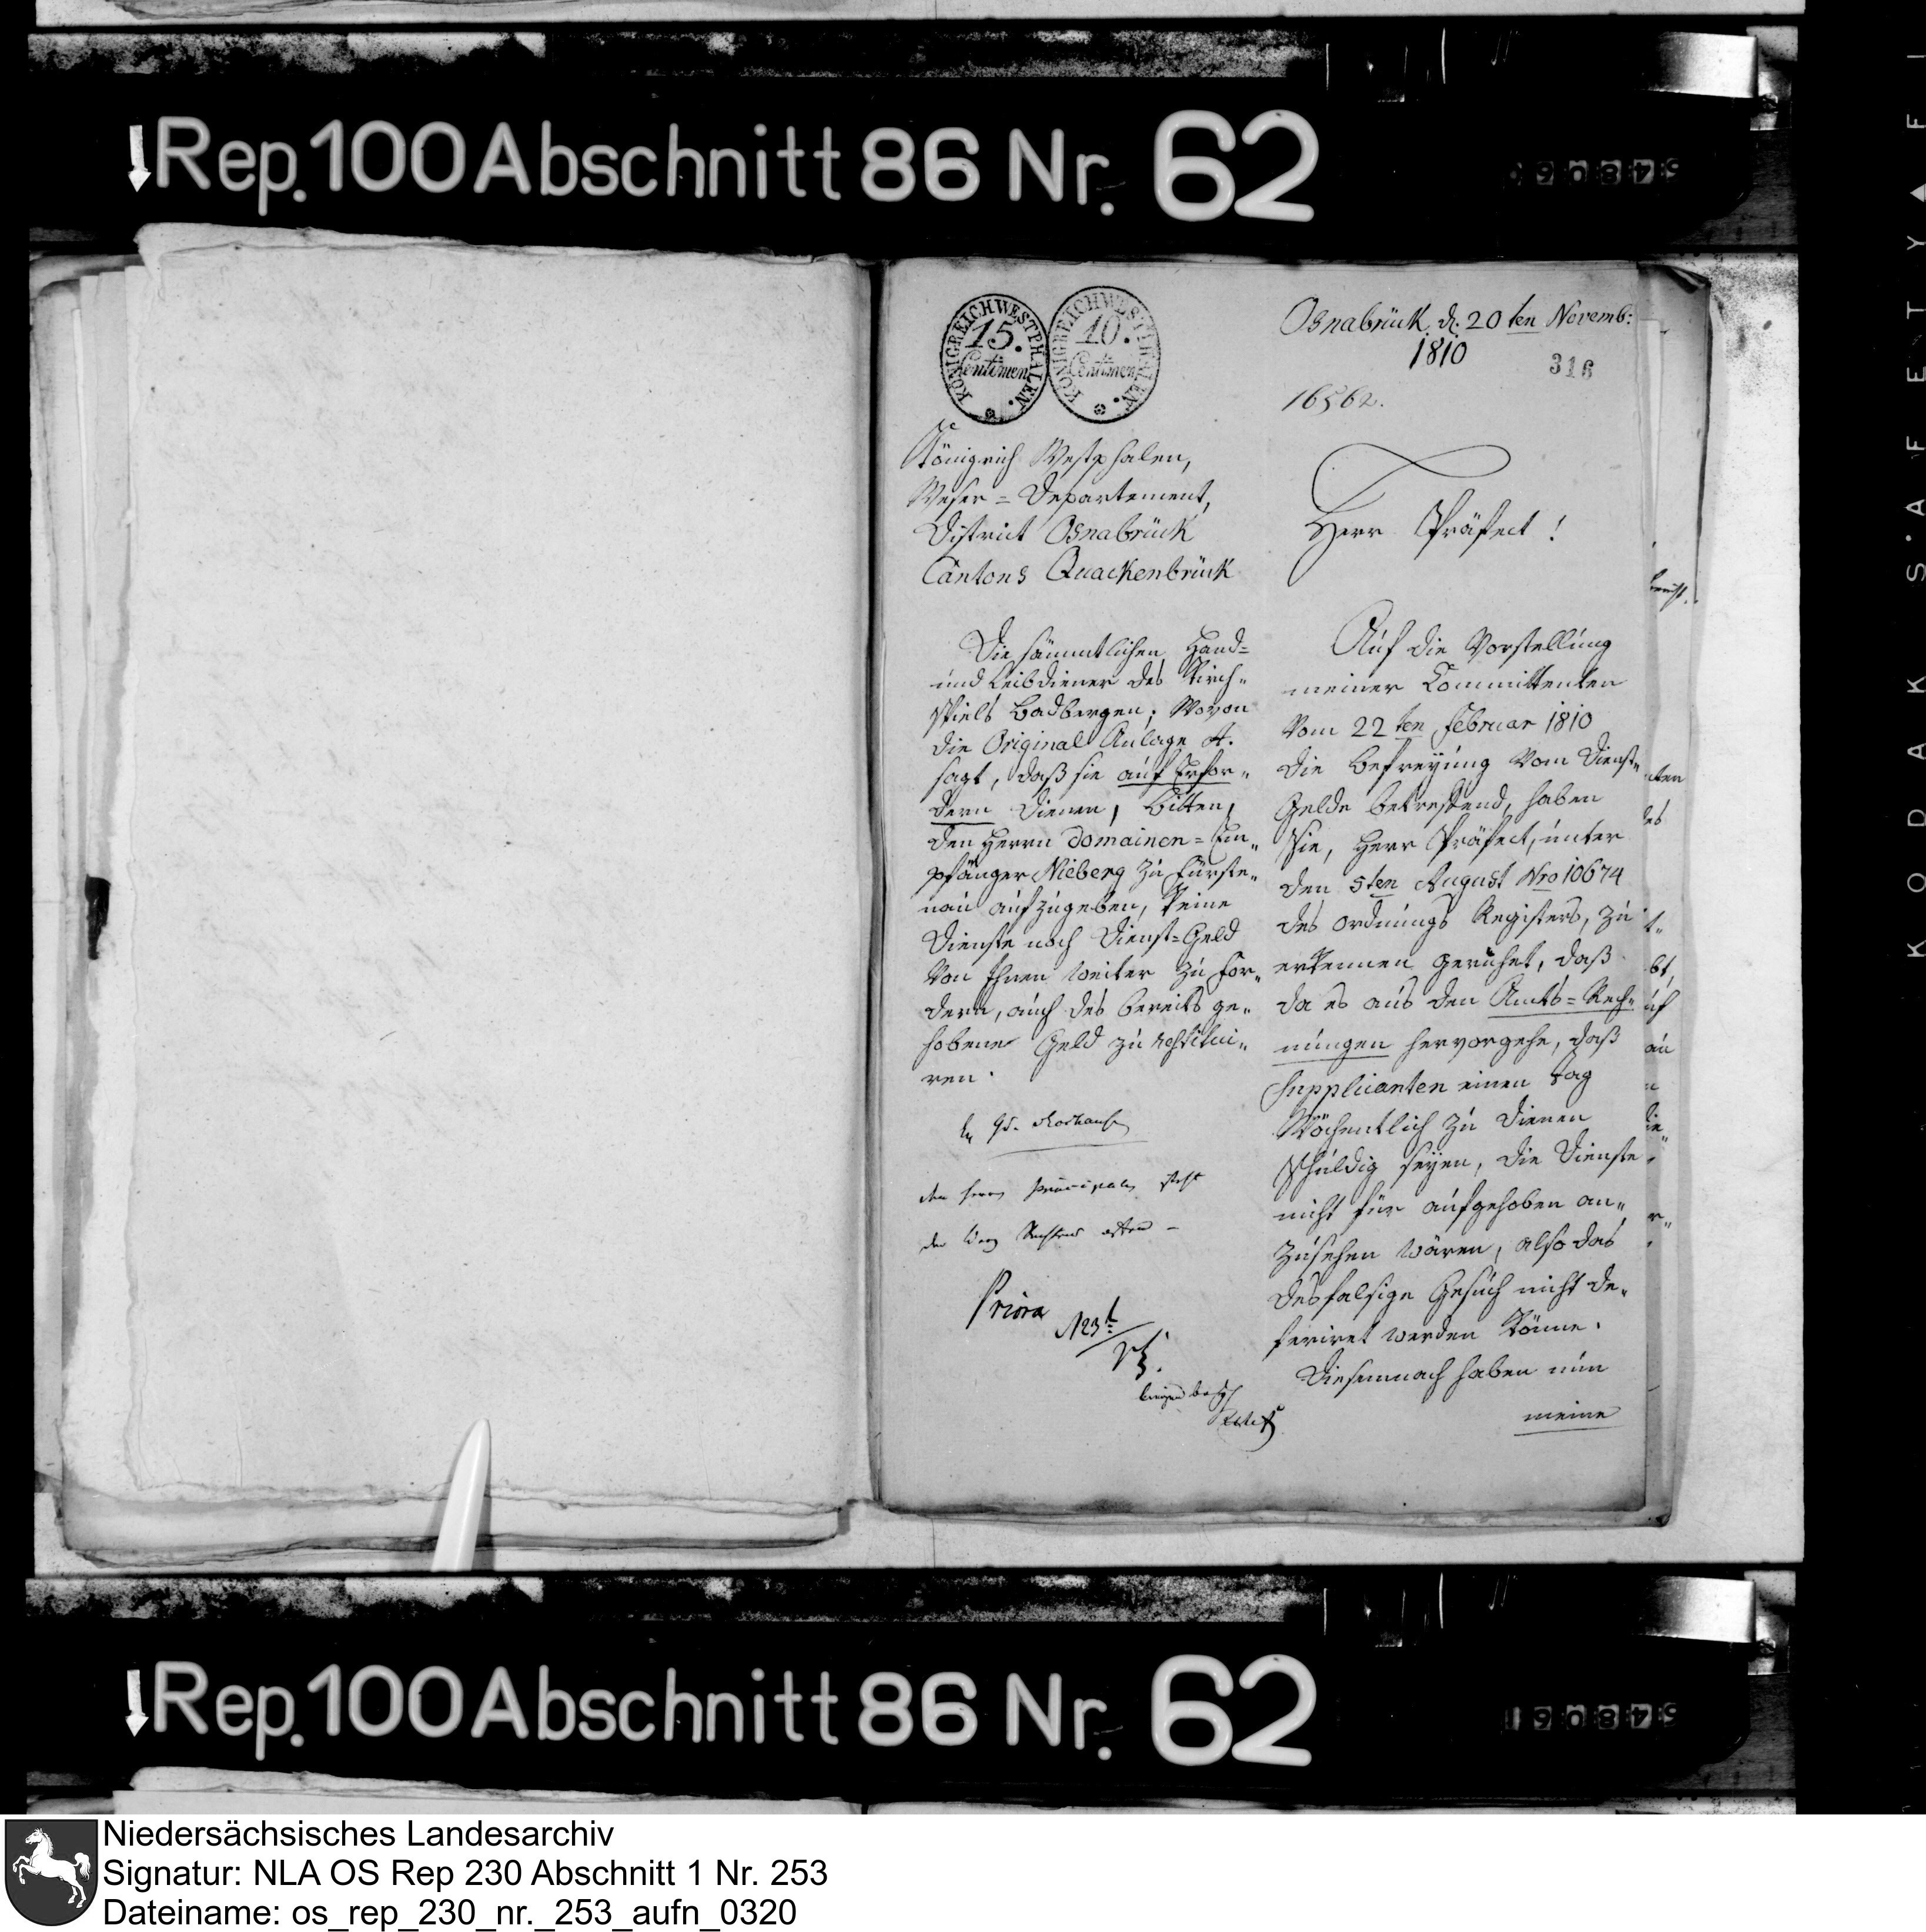 Rep. 100 Abschnitt 86 Nr. 62
KÖNIGREICH WESTPHALEN.
15.
Centimen
KÖNIGREICH WESTPHALEN.
10.
Centimen
Osnabrück, d. 20ten Novemb:
1810
316
16562.
Königreich Westphalen,
Weser = Departement,
District Osnabrück
Cantons Quackenbrück
Die sämmtlichen Hand=
und Leibdiener des Kirch„
spiels Badbergen; wovon
die Original Anlage A.
sagt, daß sie auf Erfor„
dern dienen, bitten,
den Herrn Domainen = Em„
pfänger Nieberg zu Fürste„
nau aufzugeben, keine
Dienste noch Dienst=Geld
von Ihnen weiter zu for„
dern, auch das bereits ge„
hobene Geld zu restitui„
ren.
den Herrn Principalen steht
der Weg Rechtens offen -
Priora
N 23t
Herr Präfect!
Auf die Vorstellung
meiner Committenten
vom 22ten Februar 1810
die Befreyung vom Dienst„
Gelde betreffend, haben
Sie, Herr Präfect, unter
den 5ten August Nro 10674
des Ordnungs Registers, zu
erkennen geruhet, daß
da es aus den Amts=Rech„
nungen hervorgehe, daß
Supplicanten einen Tag
Wöchentlich zu dienen
schuldig seyen, die Dienste
nicht für aufgehoben an„
zusehen wären, also das
desfalsige Gesuch nicht de„
feriret werden könne.
Diesemnach haben nun
meine
Rep. 100 Abschnitt 86 Nr. 62
KODAK SAFETY
Niedersächsisches Landesarchiv
Signatur: NLA OS Rep 230 Abschnitt 1 Nr. 253
Dateiname: os_rep_230_nr._253_aufn_0320